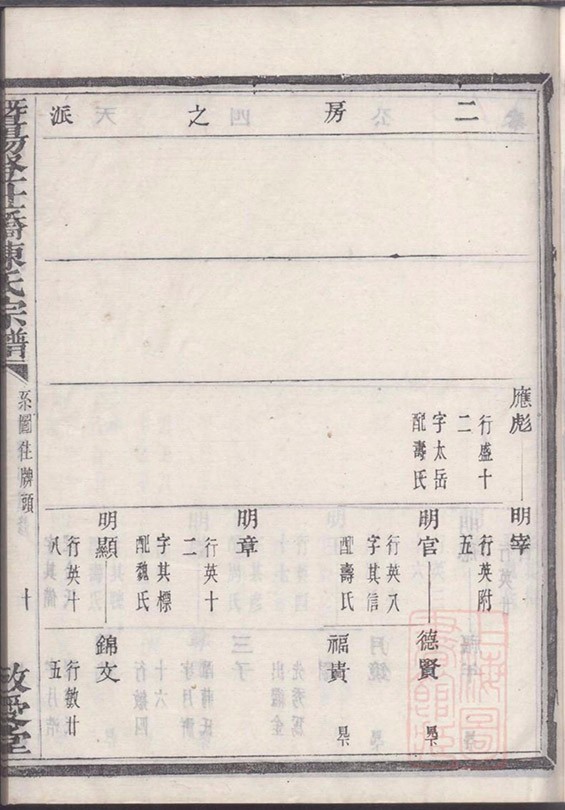 二房之派
應彪
行盛十
二
字太岳
配壽氏
明宰
行英附
五
明官
行英八
字其信
配壽氏
德賢
福貴
明章
行英十
二
字其標
配魏氏
明顯
行英十
八
錦文
行敏廿
五
陳氏宗譜
系圖
牌頭
十
敬愛堂